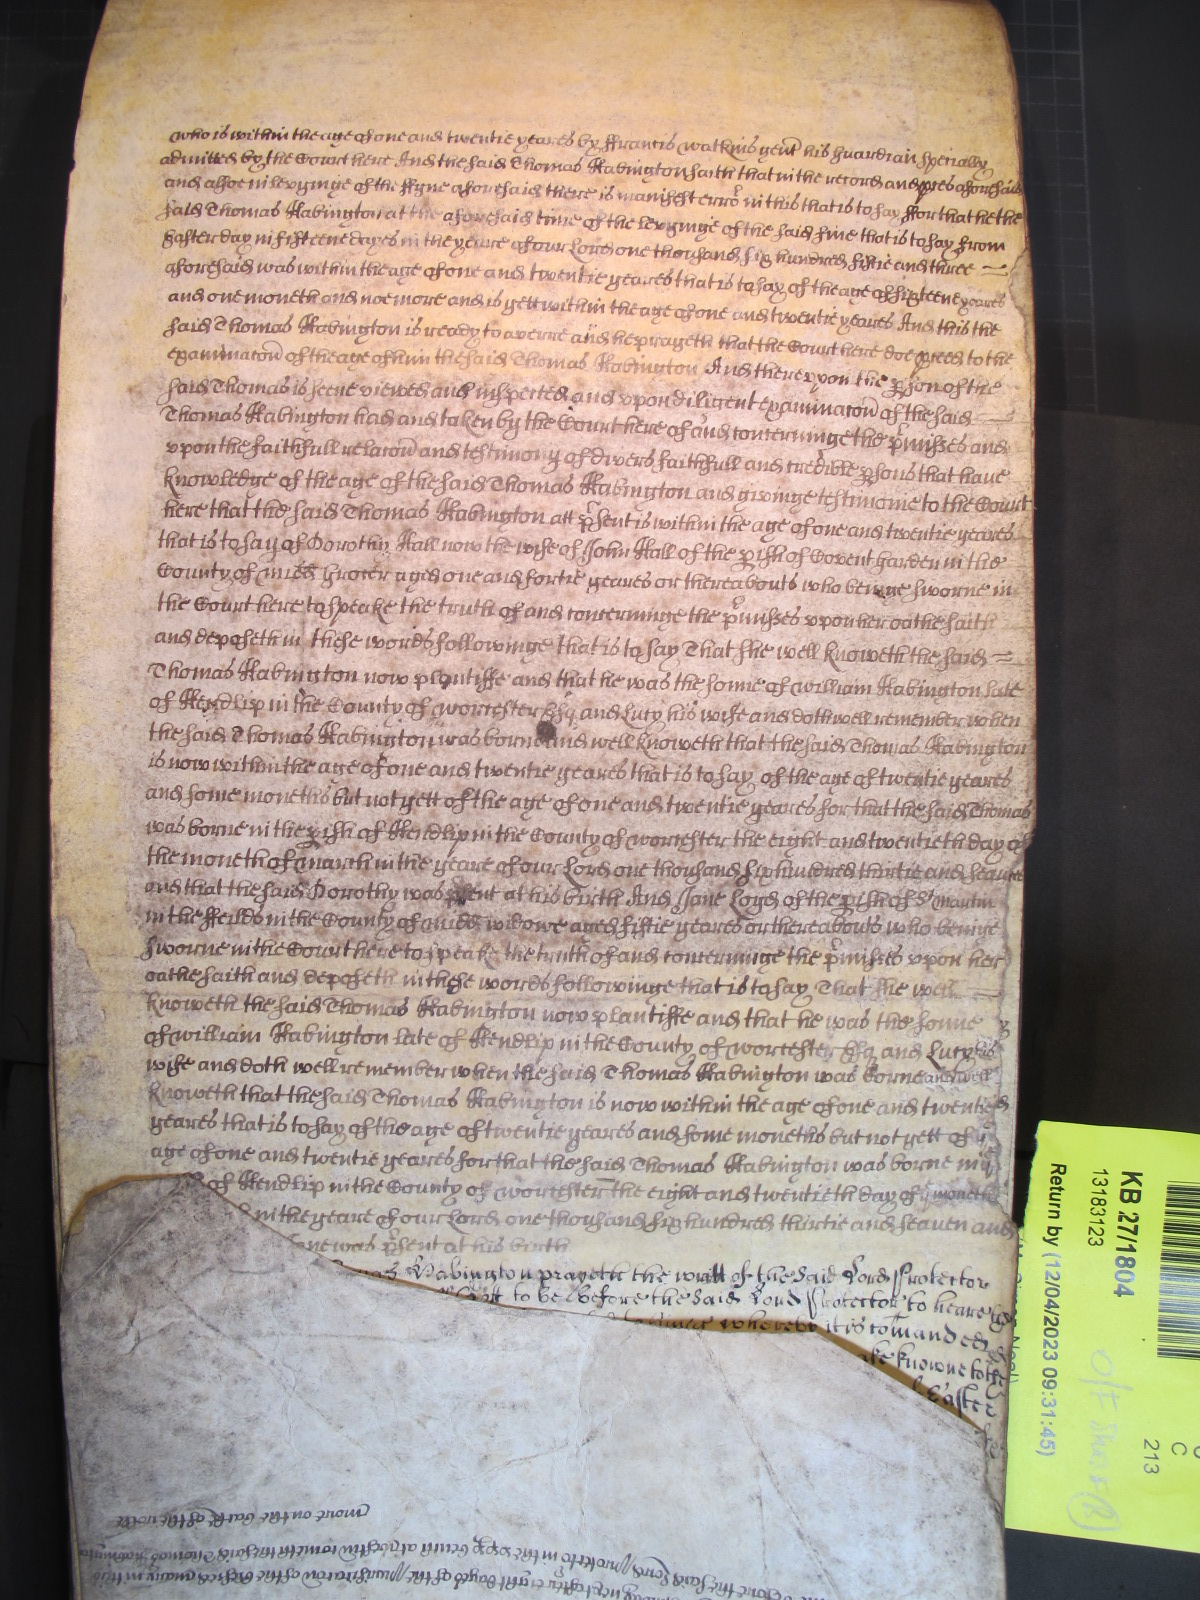 who is within the age of one and twentie yeares by ffrancis watkins gent his guardian specially
admitted by the Court here And the said Thomas Habington saith that in the record and pces aforesaid
and alsoe in levyinge of the ffyne aforesaid there is manifest error in this that is to say ffor that he the
said Thomas Habington at the aforesaid time of the levyinge of the said fine that is to say from
Easter day in fifteene dayes in the yeare of our Lord one thousand six hundred fiftie and three
aforesaid was within the age of one and twentie yeares that is to say of the age of sixteene yeares
and one moneth and noe more and is yett within the age of one and twentie yeares And this the
said Thomas Habington is ready to averre and he prayeth that the Court here doe pceed to the
examinacon of the age of him the said Thomas Habington And thereupon the pson of the
said Thomas is seene viewed and inspected and upon diligent examinacon of the said
Thomas Habington had and taken by the Court here of and concerninge the pmisses and
upon the faithfull relacon and testimony of divers faithfull and credible psons that have
knowledge of the age of the said Thomas Habington and givinge testimonie to the Court
here that the said Thomas Habington att psent is within the age of one and twentie yeares
that is to say of Dorothy Hall now the wife of John Hall of the pish of Covent garden in the
County of Midd Grocer aged one and fortie yeares or thereabouts who beinge sworne in
the Court here to speake the truth of and concerninge the pmisses upon her oathe saith
and deposeth in these words followinge that is to say That she well knoweth the said
Thomas Habington now plantiffe and that he was the sonne of william Habington late
of Hendlip in the County of worcester Esq and Lucy his wife and doth well remember when
the said Thomas Habington was borne and well knoweth that the said Thomas Habington
is now within the age of one and twentie yeares that is to say of the age of twentie yeares
and some moneths but not yett of the age of one and twentie yeares for that the said Thomas
was borne in the pish of Hendlip in the County of worcester the eight and twentieth day of
the moneth of march in the yeare of our Lord one thousand six hundred thirtie and seaven
and that the said Dorothy was psent at his birth And Jane Loyd of the pish of St Martin
in the ffeilds in the County of Midd widowe aged fiftie yeares or thereabouts who beinge
sworne in the Court here to speake the truth of and concerninge the pmisses upon her
oathe saith and deposeth in these words followinge that is to say That she well
knoweth the said Thomas Habington now plantiffe and that he was the sonne
of william Habington late of Hendlip in the County of worcester Esq and Lucy his
wife and doth well remember when the said Thomas Habington was borne and well
knoweth that the said Thomas Habington is now within the age of one and twentie
yeares that is to say of the age of twentie yeares and some moneths but not yett of
age of one and twentie yeares for that the said Thomas Habington was borne in
of Hendlip in the County of worcester the eight and twentieth day of moneth
in the yeare of our Lord one thousand six hundred thirtie and seaven and
was psent at his birth
Habington prayeth the writt of the said Lord Protector
to be before the said Lord Protector to heare
whereby it is comanded
knowne to the
Easter
more on the back of the roll
KB 27/1804
13183123
Return by (12/04/2023 09:31:45)
C
213